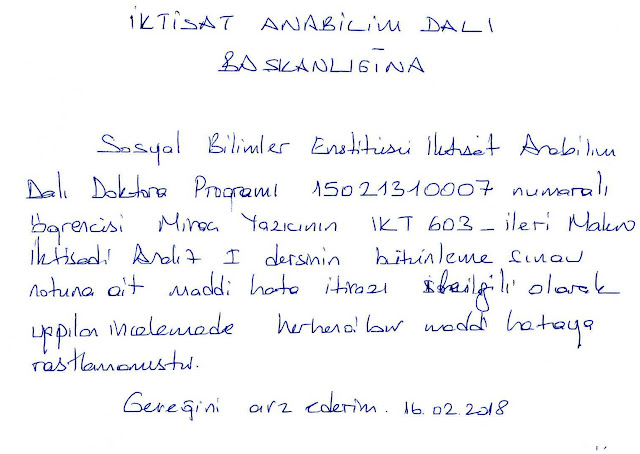 İKTİSAT ANABİLİM DALI
BAŞKANLIĞINA
Sosyal Bilimler Enstitüsü İktisat Anabilim
Dalı Doktora Programı 15021310007 numaralı
öğrencisi Miraç Yazıcının IKT 603_ ileri Makro
İktisadi Analiz I dersinin bütünleme sınav
notuna ait maddi hata itirazı ilgili olarak
yapılan incelemede herhangi bir maddi hataya
rastlanmamıştır.
Gereğini arz ederim. 16.02.2018